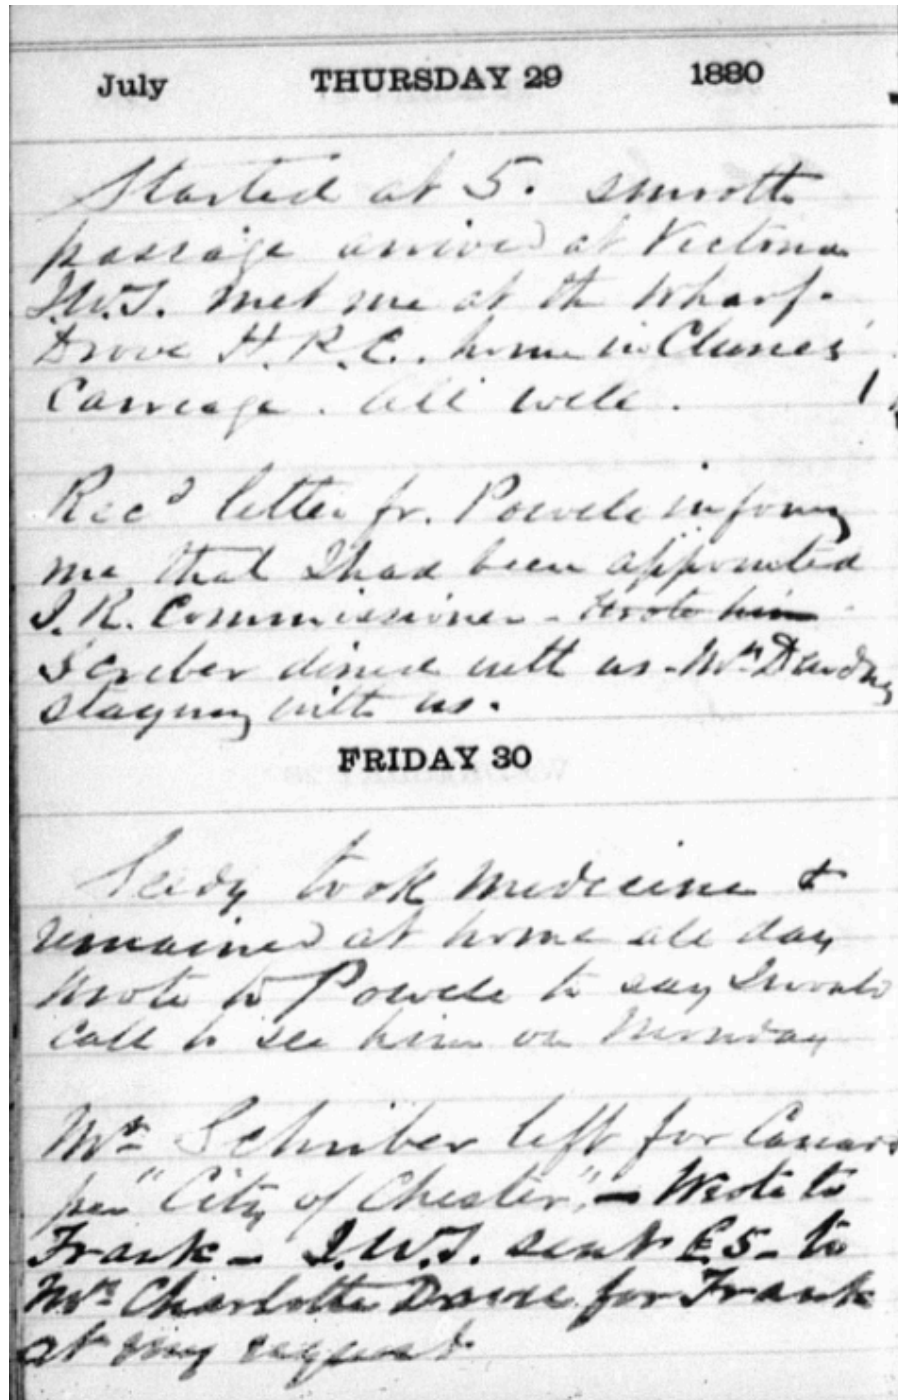 July THURSDAY 29 1880
Started at 5. smooth
passage arrived at Victoria
J.W.T. met me at the Wharf.
Drove H. R. C. home in Clunes'
Carriage. All well.
Recd letter fr. Powell informg
me that I had been appointed
I. R. Commissioner - Wrote him
Scriber dined with us - Mrs Dewdney
staying with us.
FRIDAY 30
Seedy took medicine &
remained at home all day
wrote to Powell to say I would
call to see him on Monday
Mr Schriber left for Canada
per "City of Chester", - Wrote to
Frank - J.W.T. sent £5 - to
Mrs Charlotte for Frank
at my request